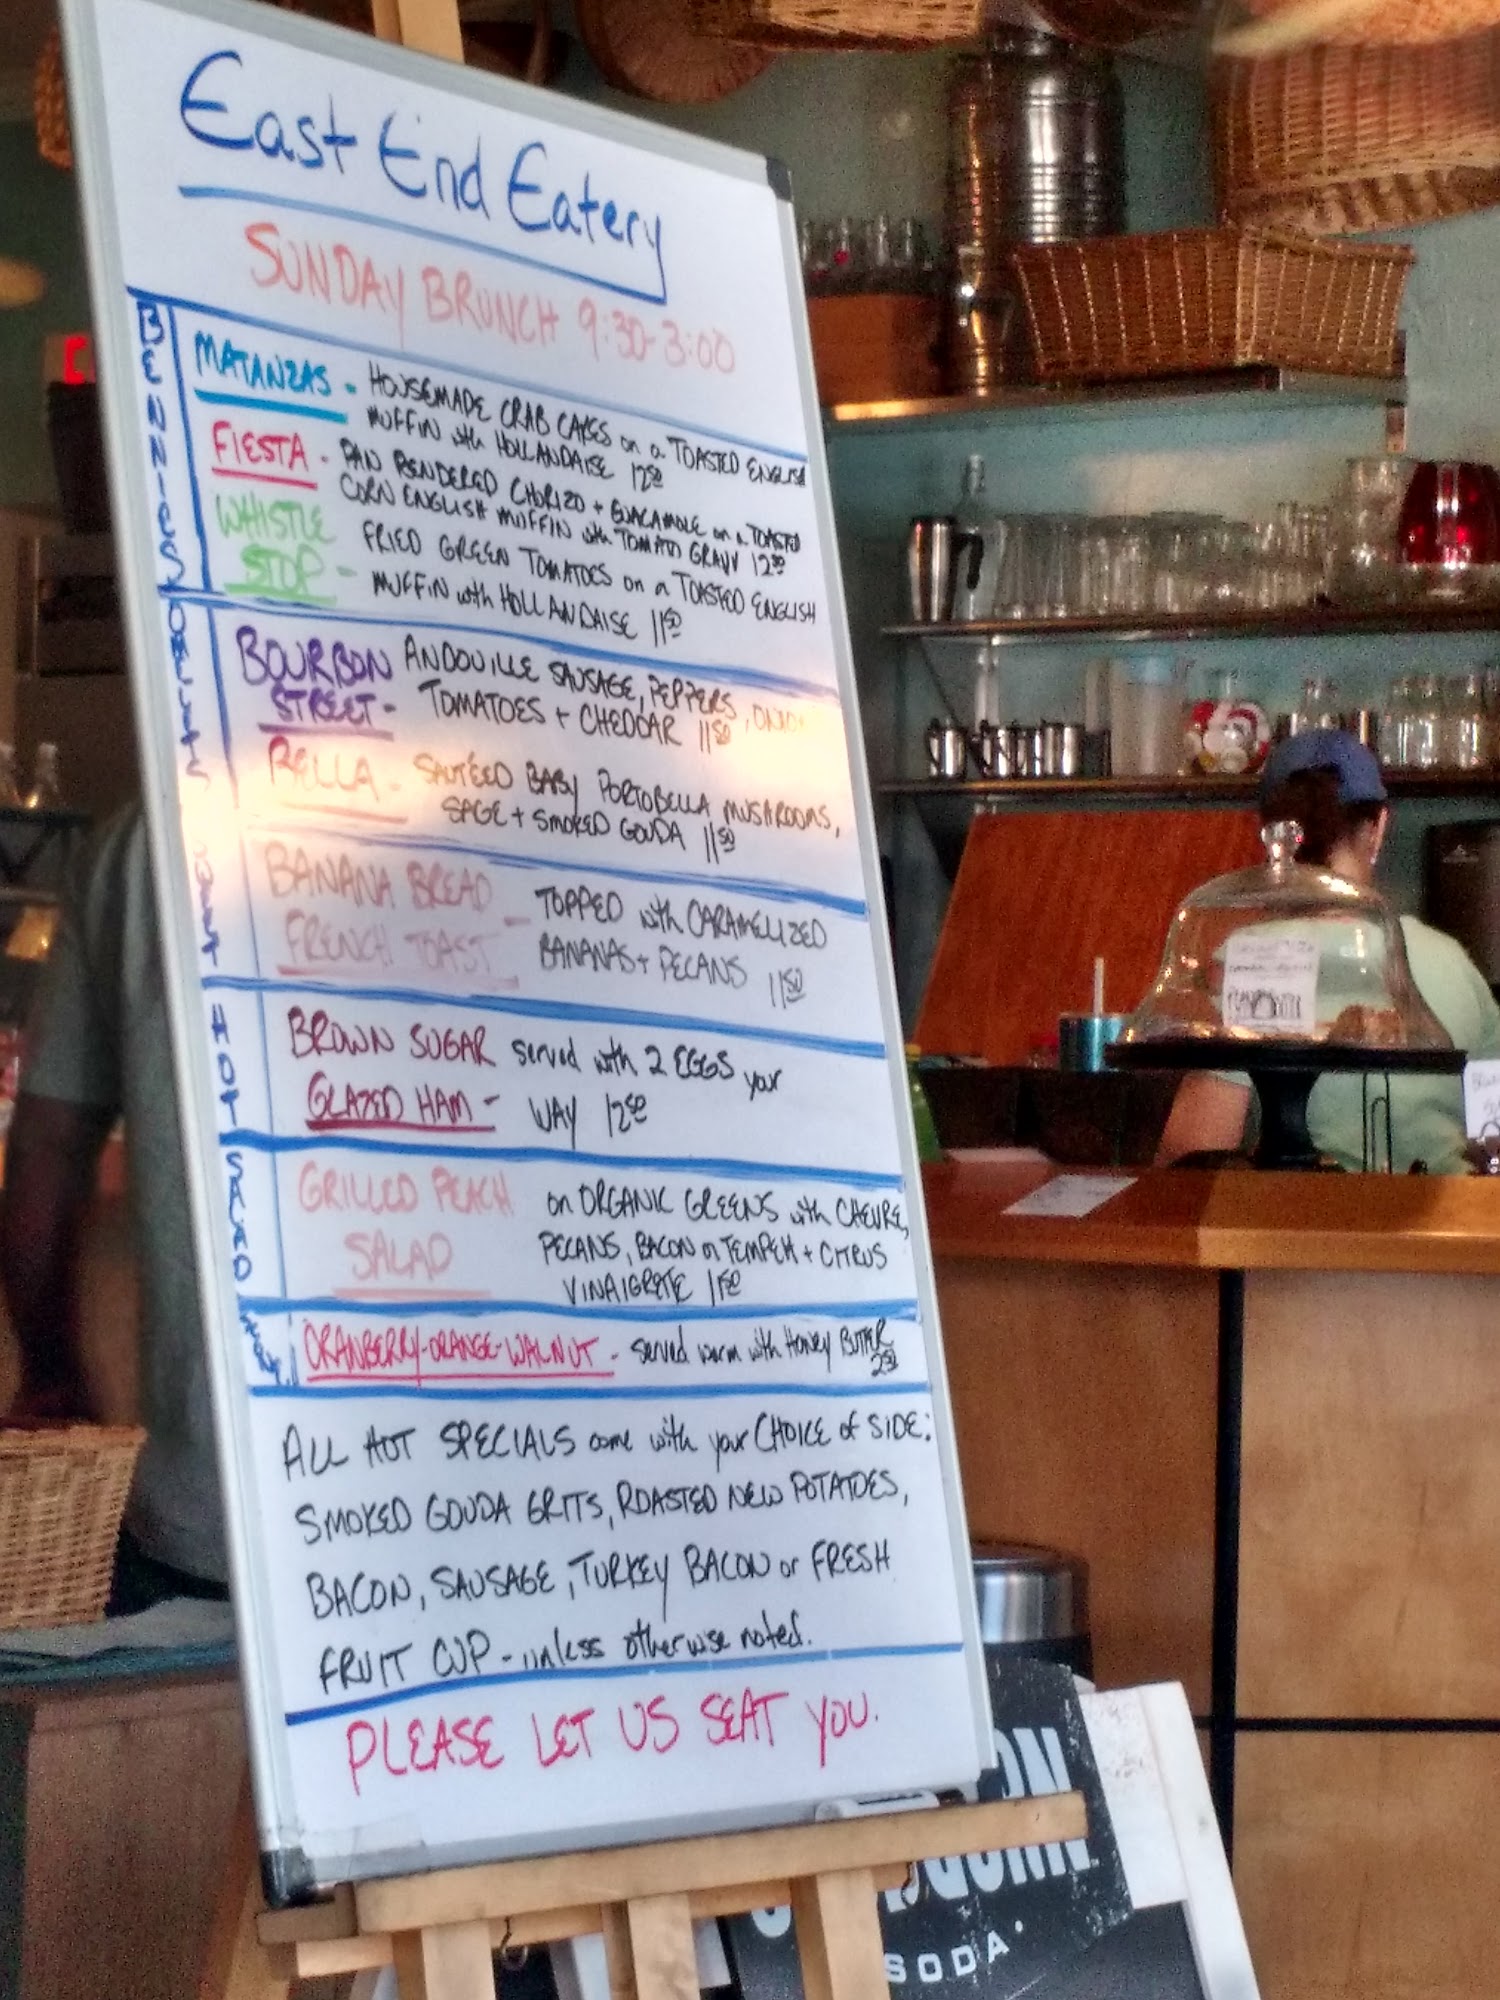 East End Eatery
SUNDAY BRUNCH 9:30-3:00
BENNIES
MATANZAS - HOUSEMADE CRAB CAKES on a TOASTED ENGLISH
MUFFIN with HOLLANDAISE 12.50
FIESTA - PAN RENDERED CHORIZO + GUACAMOLE on a TOASTED
CORN ENGLISH MUFFIN with TOMATO GRAVY 12.50
WHISTLE
STOP - FRIED GREEN TOMATOES on a TOASTED ENGLISH
MUFFIN with HOLLANDAISE 11.50
OBLETS
BOURBON ANDOUILLE SAUSAGE, PEPPERS, ONION
STREET - TOMATOES + CHEDDAR 11.50
BELLA - SAUTÉED BABY PORTOBELLA MUSHROOMS,
SAGE + SMOKED GOUDA 11.50
BANANA BREAD
FRENCH TOAST - TOPPED with CARAMELIZED
BANANAS + PECANS 11.50
HOT
BROWN SUGAR served with 2 EGGS your
GLAZED HAM - WAY 12.50
SALAD
GRILLED PEACH on ORGANIC GREENS with CHEVRE,
SALAD PECANS, BACON or TEMPEH + CITRUS
VINAIGRETTE 11.50
CRANBERRY-ORANGE-WALNUT - served warm with Honey BUTTER
2.50
ALL HOT SPECIALS come with your CHOICE of SIDE:
SMOKED GOUDA GRITS, ROASTED NEW POTATOES,
BACON, SAUSAGE, TURKEY BACON or FRESH
FRUIT CUP - unless otherwise noted.
PLEASE LET US SEAT YOU.
SODA